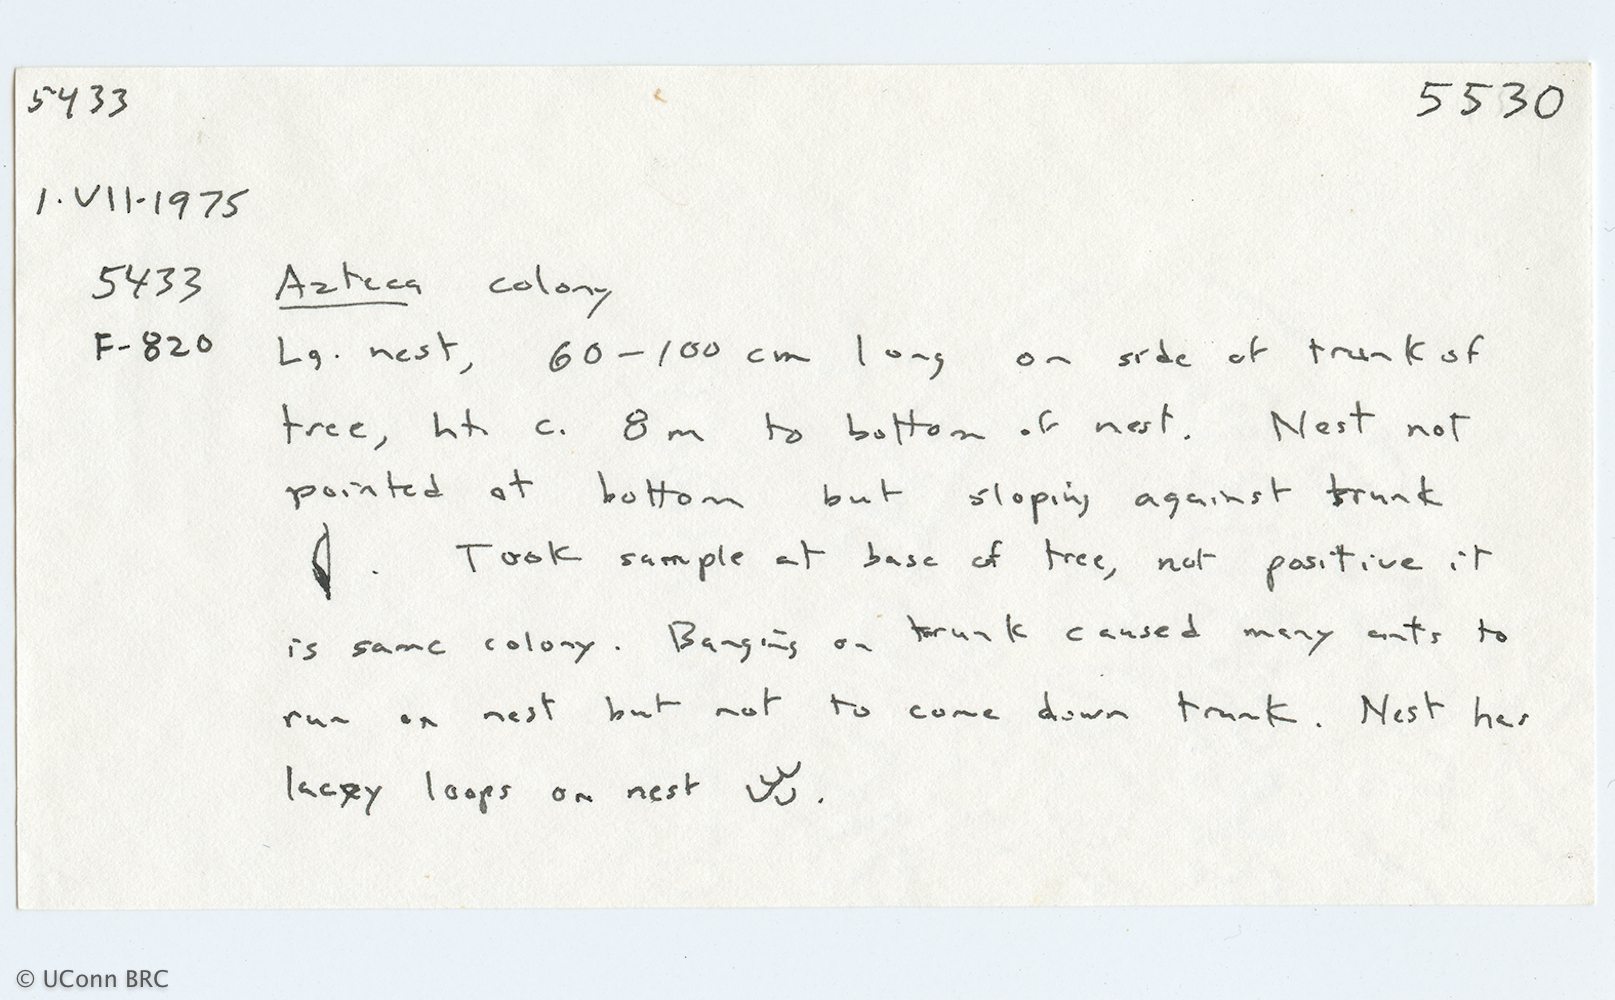 5433 5530
1.VII.1975
5433 Azteca colony
F-820 Lg. nest, 60-100 cm long on side of trunk of
tree, ht. c. 8 m to bottom of nest. Nest not
pointed at bottom but sloping against trunk
. Took sample at base of tree, not positive it
is same colony. Banging on trunk caused many ants to
run on nest but not to come down trunk. Nest has
lacey loops on nest .
© UConn BRC